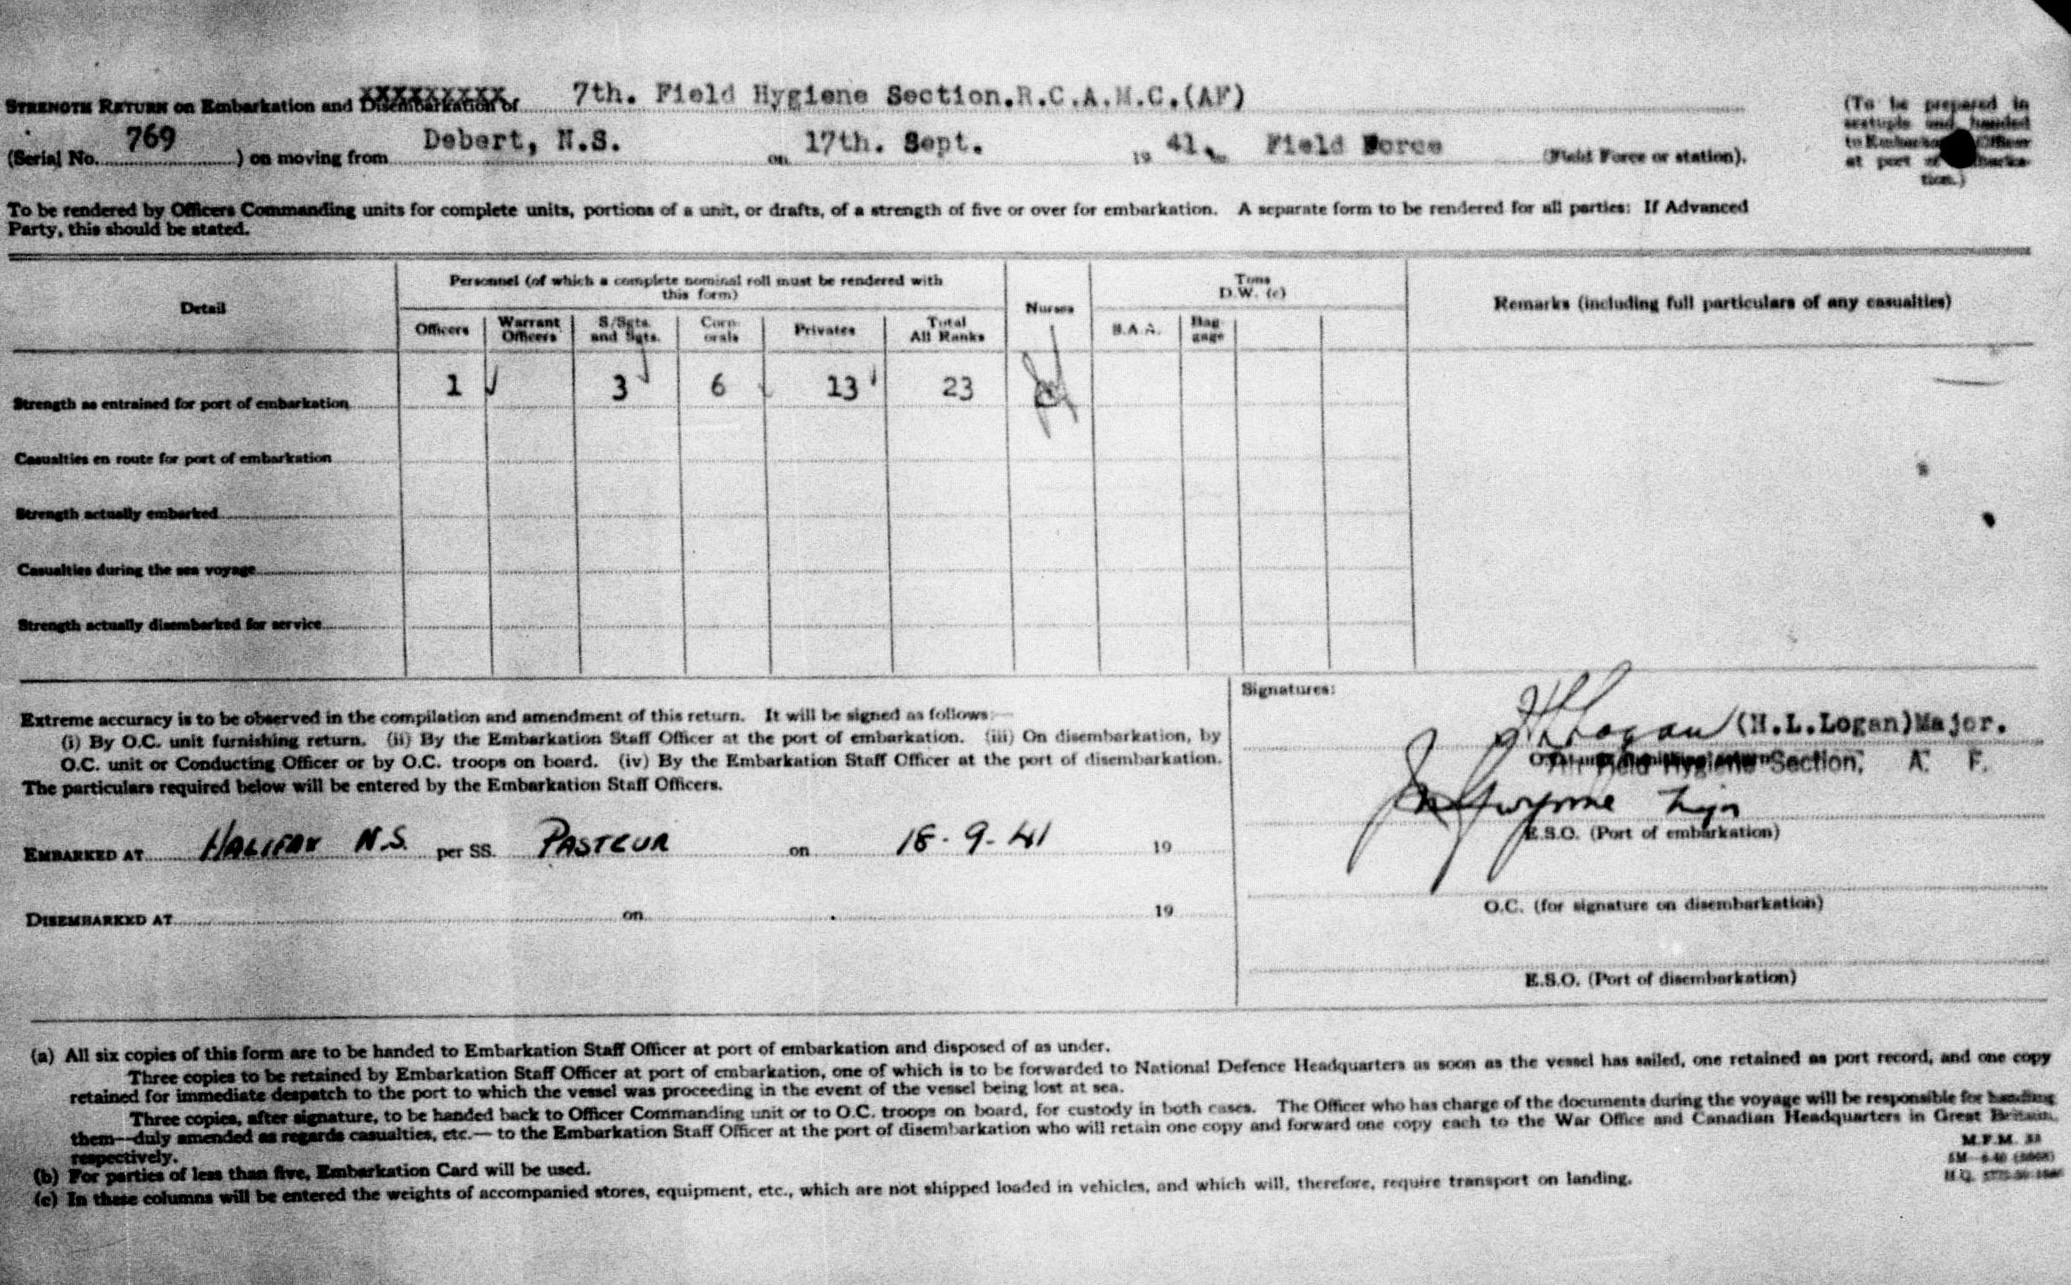 STRENGTH RETURN on Embarkation and Disembarkation of 7th. Field Hygiene Section.R.C.A.M.C.(AF)
(Serial No. 769 ) on moving from Debert, N.S. on 17th. Sept. 19 41. to Field Force (Field Force or station).
(To be prepared in
sextuple and handed
to Officer
at port of
tion.)
To be rendered by Officers Commanding units for complete units, portions of a unit, or drafts, of a strength of five or over for embarkation. A separate form to be rendered for all parties: If Advanced
Party, this should be stated.
Detail
Personnel (of which a complete nominal roll must be rendered with
this form)
Officers
Warrant
Officers
S/Sgts.
and Sgts.
Corp-
orals
Privates
Total
All Ranks
Nurses
Tons
D.W. (c)
S.A.A.
Bag-
gage
Remarks (including full particulars of any casualties)
Strength as entrained for port of embarkation 1 3 6 13 23
Casualties en route for port of embarkation
Strength actually embarked
Casualties during the sea voyage
Strength actually disembarked for service
Extreme accuracy is to be observed in the compilation and amendment of this return. It will be signed as follows:—
(i) By O.C. unit furnishing return. (ii) By the Embarkation Staff Officer at the port of embarkation. (iii) On disembarkation, by
O.C. unit or Conducting Officer or by O.C. troops on board. (iv) By the Embarkation Staff Officer at the port of disembarkation.
The particulars required below will be entered by the Embarkation Staff Officers.
EMBARKED AT HALIFAX N.S. per SS. PASTEUR on 18-9-41 19
DISEMBARKED AT on 19
Signatures:
HLLogan (H.L.Logan)Major.
Field Hygiene Section, A. F.
Gwynne Major
E.S.O. (Port of embarkation)
O.C. (for signature on disembarkation)
E.S.O. (Port of disembarkation)
(a) All six copies of this form are to be handed to Embarkation Staff Officer at port of embarkation and disposed of as under.
Three copies to be retained by Embarkation Staff Officer at port of embarkation, one of which is to be forwarded to National Defence Headquarters as soon as the vessel has sailed, one retained as port record, and one copy
retained for immediate despatch to the port to which the vessel was proceeding in the event of the vessel being lost at sea.
Three copies, after signature, to be handed back to Officer Commanding unit or to O.C. troops on board, for custody in both cases. The Officer who has charge of the documents during the voyage will be responsible for handing
them—duly amended as regards casualties, etc.— to the Embarkation Staff Officer at the port of disembarkation who will retain one copy and forward one copy each to the War Office and Canadian Headquarters in Great Britain,
respectively.
(b) For parties of less than five, Embarkation Card will be used.
(c) In these columns will be entered the weights of accompanied stores, equipment, etc., which are not shipped loaded in vehicles, and which will, therefore, require transport on landing.
M.F.M. 33
H.Q.